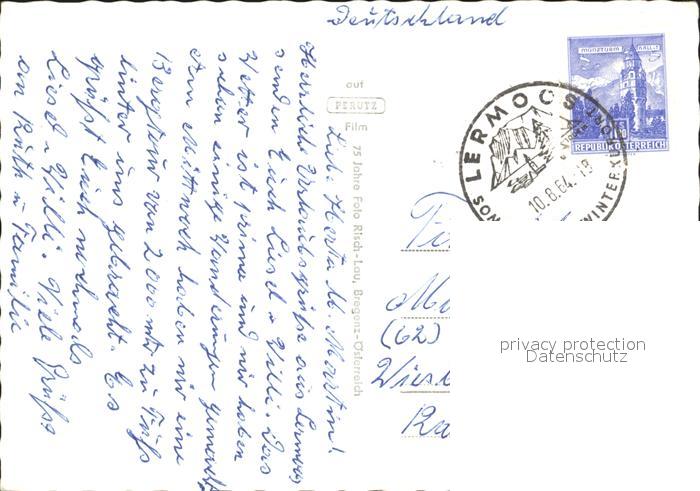 Deutschland
Lieb. Herta u. Martin!
Herzliche Urlaubsgrüße aus Lermoos
senden Euch Liesel u. Willi. Das
Wetter ist prima und wir haben
schon einige Wanderungen gemacht.
Am Mittwoch haben wir eine
Bergtour von 2000 mtr zu Fuß
hinter uns gebracht. Es
grüßt Euch nochmals
Liesel u. Willi. Viele Grüße
an Ruth u. Familie
auf
PERUTZ
Film
75 Jahre Foto Risch-Lau, Bregenz-Österreich
MÜNZTURM HALL i. T.
REPUBLIK ÖSTERREICH
LERMOOS
10.8.64.-18
WINTER
(62)
privacy protection
Datenschutz